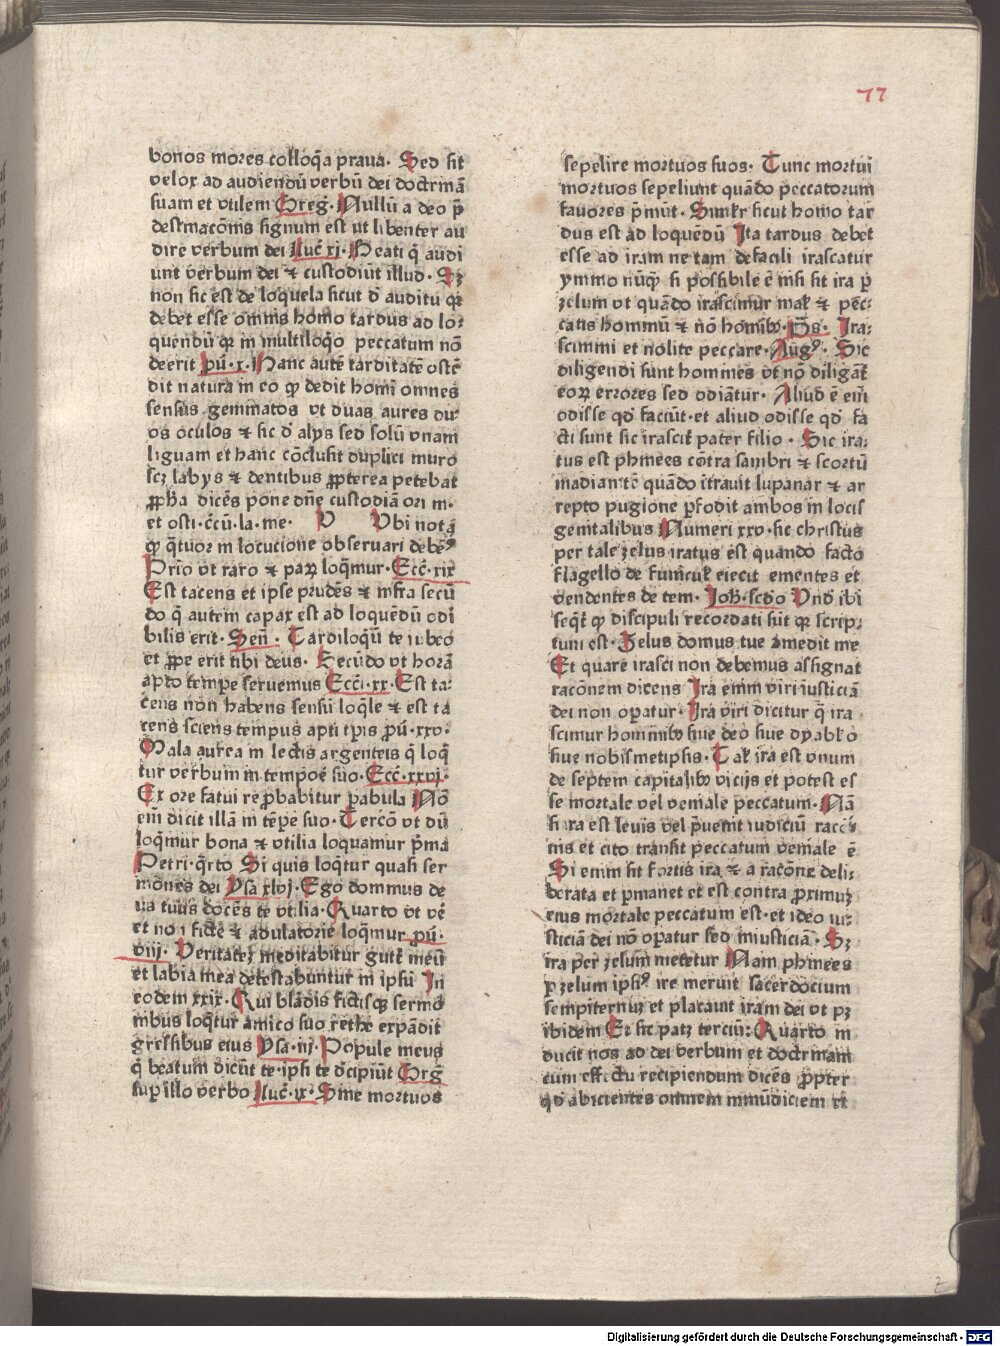 77
bonos mores colloq̄a praua. Sed sit
velox ad audiendū verbū dei doctrinā
suam et vtilem Greg. Nullū a deo p̄
destinacōnis signum est vt libenter au
dire verbum dei Luc̄ xj. Beati q̄ audi
unt verbum dei ⁊ custodiūt illud. Sꝫ
non sic est de loquela sicut d̄ auditu qꝛ
debet esse omnis homo tardus ad lo⸗
quendū qꝛ in multiloq̄o peccatum nō
deerit pū. x. Hanc autē tarditatē ostē
dit natura in eo ꝙ dedit homī omnes
sensus gemmatos vt duas aures du⸗
os oculos ⁊ sic d̄ alijs sed solū vnam
liguam et hanc cōclusit duplici muro
scꝫ labijs ⁊ dentibus ꝓpterea petebat
ꝓpha dicēs pone dn̄e custodiā ori m.
et osti. c̄cū. la. me. V Vbi nota
ꝙ q̄tuor in locucione obseruari debēt
Prīo vt raro ⁊ paꝝ loq̄mur. Ecc̄. xix
Est tacens et ipse prudēs ⁊ infra secū
do q̄ autem capax est ad loquēdū odi
bilis erit. Sen̄. Tardiloq̄ū te iubeo
et ꝓpe erit tibi deus. Secūdo vt horā
apto tempe seruemus Ecc̄i. xx. Est ta⸗
cēns non habens sensū loq̄le ⁊ est ta
cens sciens tempus apti tp̄is pū. xxv.
Mala aurea in lectis argenteis q̄ loq̄
tur verbum in tempoē suo. Ecc̄. xxvi.
Ex ore fatui re probabitur pabula Nō
em̄ dicit illā in tēpe suo. Tercō vt dū
loq̄mur bona ⁊ vtilia loquamur p̄ma
Petri. q̄rto Si quis loq̄tur quasi ser
mōnes dei Ysa xlvj. Ego dominus de
us tuus docēs te vtilia. Quarto vt vē
et non ficte ⁊ adulatorie loq̄mur pū.
viij. Veritatēꝫ meditabitur gutt̄ meū
et labia mea detestabuntur in ipsū In
eodem xxix. Qui blādis fictisqꝫ sermo
nibus loq̄tur amico suo rethe expādit
gressibus eius Ysa. iij. Popule meus
q̄ beatum dicūt te. ipsi te dcipiūt Grḡ
sup illo verbo Luc̄. ix. Sine mortuos
sepelire mortuos suos. Tunc mortui
mortuos sepeliunt quādo peccatorum
fauores p̄mūt. Similr̄ sicut homo tar
dus est ad loquēdū Ita tardus debet
esse ad iram ne tam defacili irascatur
ymmo nūq̄ si possibile ē nisi sit ira p̄
zelum vt quādo irascimur mal̄ ⁊ pec⸗
catis hominū ⁊ nō homībꝰ. Ps. Ira⸗
scimini et nolite peccare. Augꝰ. Sic
diligendi sunt homines vt nō diligāt̄
eoꝝ errores sed odiātur. Aliud ē em̄
odisse qd̄ faciūt. et aliud odisse qd̄ fa
cti sunt sic irascit̄ pater filio. Sic ira⸗
tus est phinees cōtra sambri ⁊ scortū
madiantē quādo ītrauit lupanar ⁊ ar
repto pugione pfodit ambos in locis
genitalibus Numeri xxv. sic christus
per tale zelus iratus est quando facto
flagello de funicul̄ eiecit ementes et
vendentes de tem. Joh̄. scd̄o Vnd̄ ibi
seq̄t̄ ꝙ discipuli recordati sūt qꝛ scrip⸗
tum est. Zelus domus tue ↄmedit me
Et quare irasci non debemus assignat
racōnem dicens Ira enim viri iusticiā
dei non opatur. Ira viri dicitur q̄ ira
scimur hominibꝰ siue deo siue dyabolo
siue nobismetipsis. Tal̄ ira est vnum
de septem capitalibꝰ vicijs et potest es
se mortale vel veniale peccatum. Nā
si ira est leuis vel p̄uenit iudiciū racō
nis et cito transit peccatum veniale ē
Si enim sit fortis ira ⁊ a racōne deli⸗
berata et pmanet et est contra proximuꝫ
eius mortale peccatum est. et ideo iu⸗
sticiā dei nō opatur sed iniusticiā. Sꝫ
ira per zelum meretur Nam phinees
p zelum ipsiꝰ ire meruit sacerdocium
sempiternuꝫ et placauit iram dei vt pꝫ
ibidem Et sic patꝫ terciū: Quarto in
ducit nos ad dei verbum et doctrinam
cum effectu recipiendum dicēs ꝓpter
qd̄ abicientes omnem inmūdiciem et
z
Digitalisierung gefördert durch die Deutsche Forschungsgemeinschaft - DFG